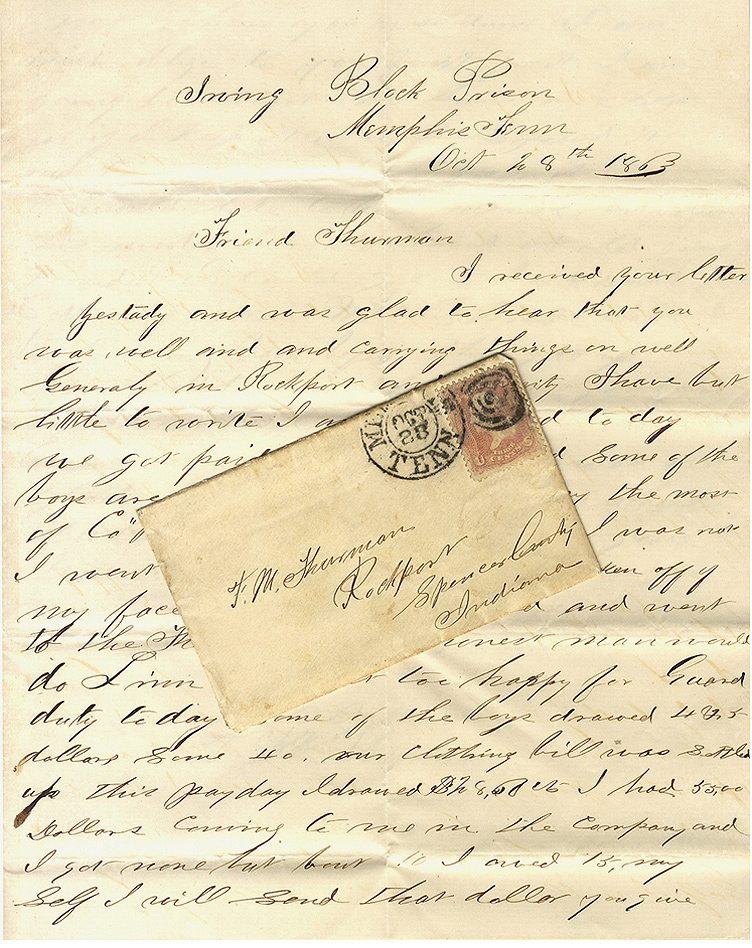 Irving Block Prison
Memphis Tenn
Oct 28th 1863
Friend Thurman
I received your letter
yestady and was glad to hear that you
was well and and carrying things on well
Generaly in Rockport an ity I have but
little to write I a d to day
we got paid d some of the
boys are y the most
of Co" I was not
I went ken off of
my face d and went
to the Th onest man would
do Linn t too happy for Guard
duty to day ome of the boys drawed 4
dollars some 40. our clothing bill was settled
up this pay day I drawed I had 55,00
Dollars coming to me in the company and
I got none but bout I owed 15, my
self I will send that dollar you give
OCT
28
TENN
THREE
CENTS
F. M. Thurman
Rockport
Spencer County
Indiana